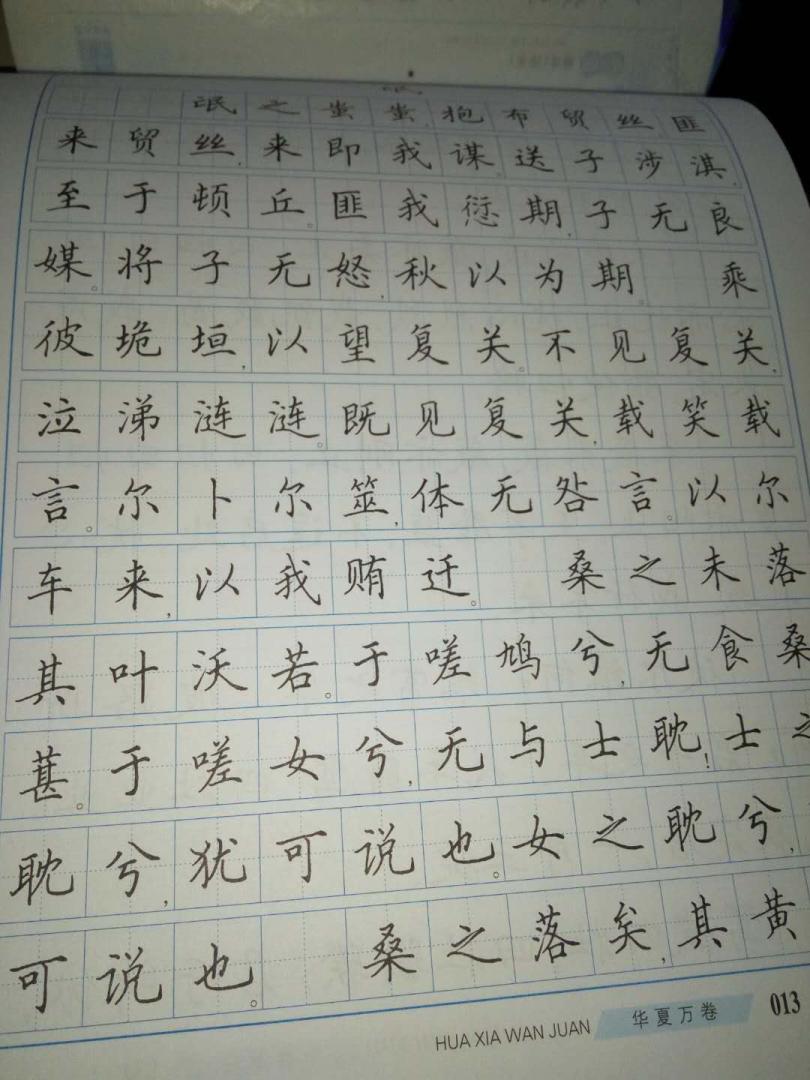 氓之蚩蚩,抱布贸丝匪
来贸丝,来即我谋。送子涉淇,
至于顿丘。匪我愆期,子无良
媒。将子无怒,秋以为期。 乘
彼垝垣,以望复关。不见复关,
泣涕涟涟。既见复关,载笑载
言。尔卜尔筮,体无咎言。以尔
车来,以我贿迁。 桑之未落
其叶沃若。于嗟鸠兮,无食桑
葚。于嗟女兮,无与士耽!士之
耽兮,犹可说也。女之耽兮,
可说也。 桑之落矣,其黄
HUA XIA WAN JUAN 华夏万卷 013